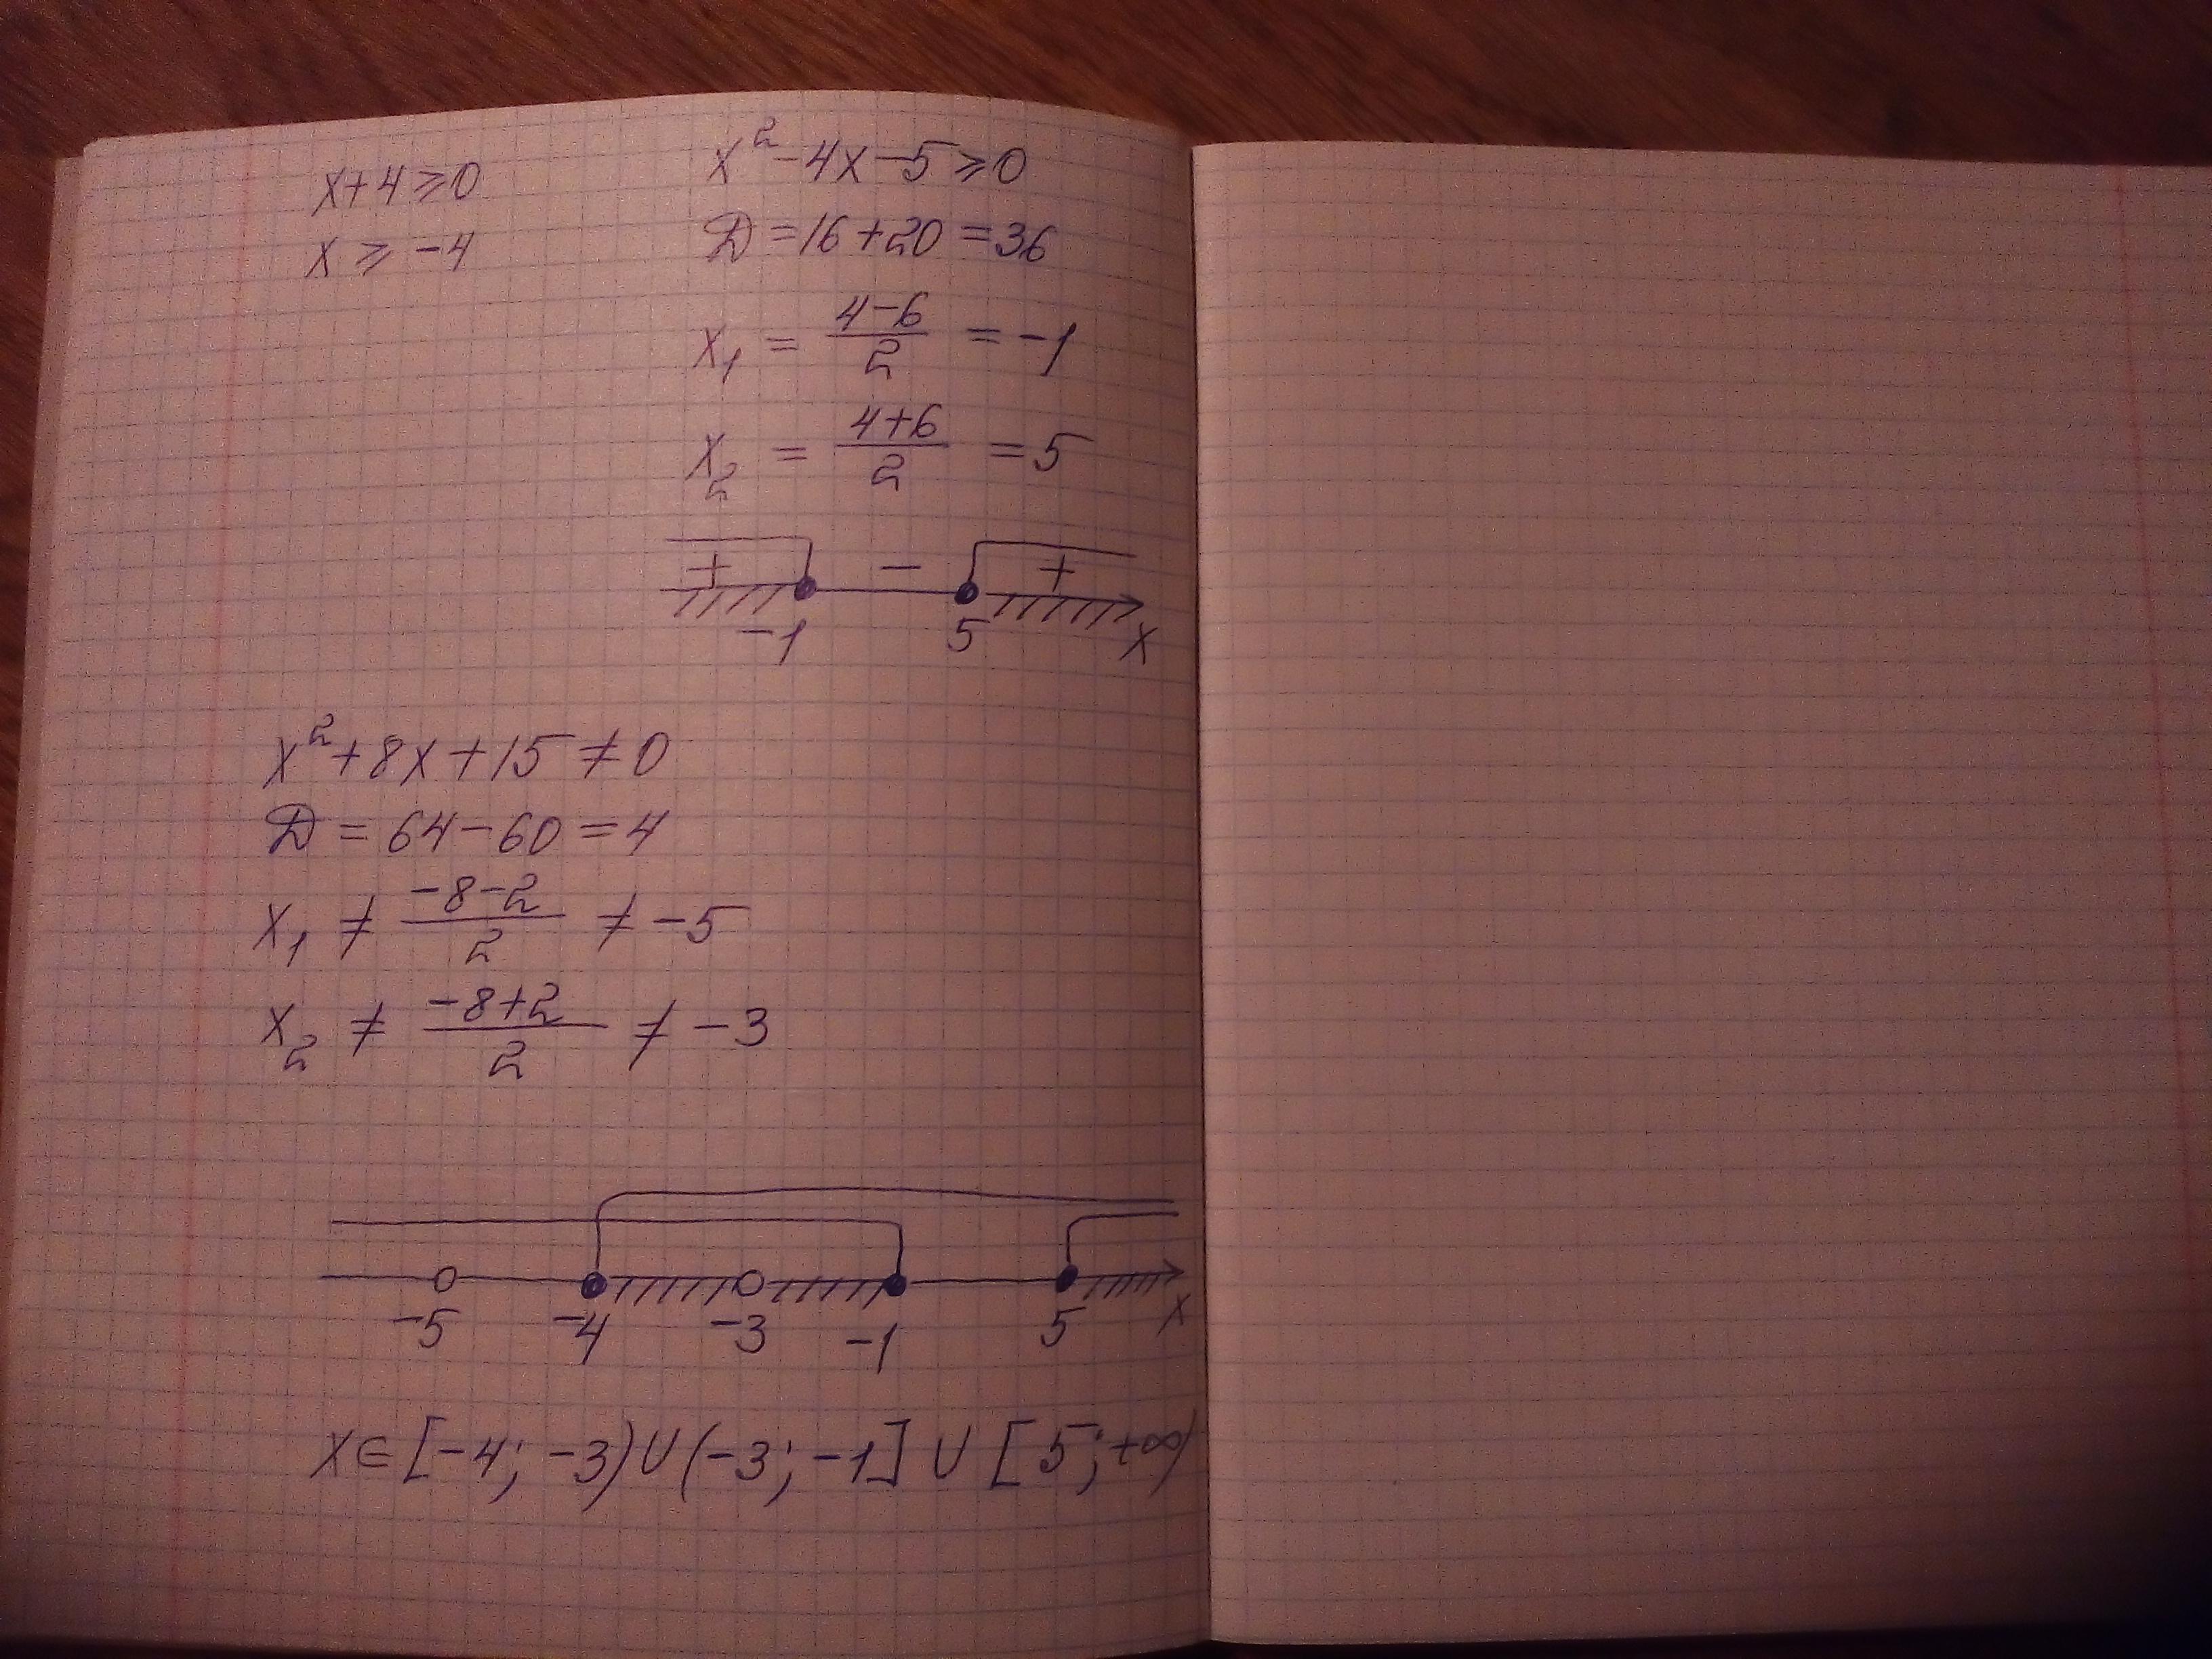 x+4⩾0
x ⩾ -4
x²-4x-5⩾0
D=16+20=36
x₁ = (4-6)/2 = -1
x₂ = (4+6)/2 = 5
+ - +
-1 5 x
x²+8x+15≠0
D = 64-60=4
x₁ ≠ (-8-2)/2 ≠ -5
x₂ ≠ (-8+2)/2 ≠ -3
-5 -4 -3 -1 5 x
x∈[-4; -3)∪(-3; -1] ∪ [5; +∞)